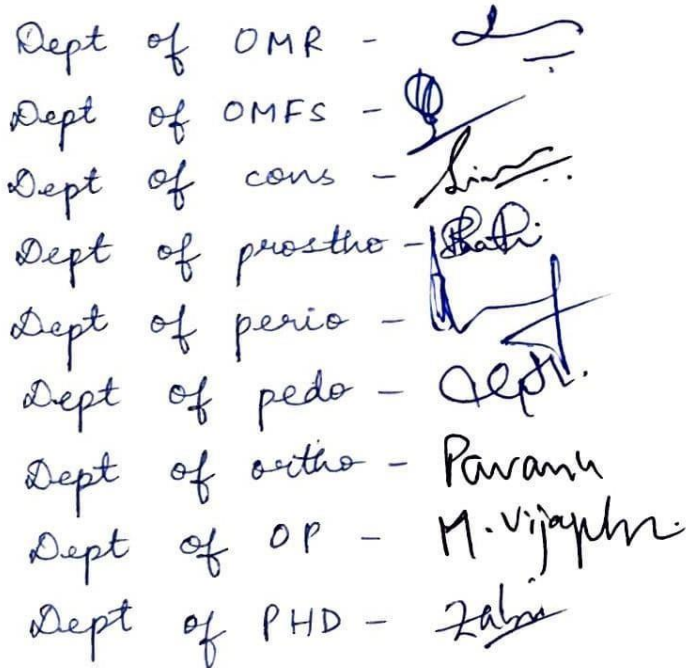 Dept of OMR -
Dept of OMFS -
Dept of cons -
Dept of prostho -
Dept of perio -
Dept of pedo -
Dept of ortho - Pavani
Dept of OP - M. Vijay
Dept of PHD -